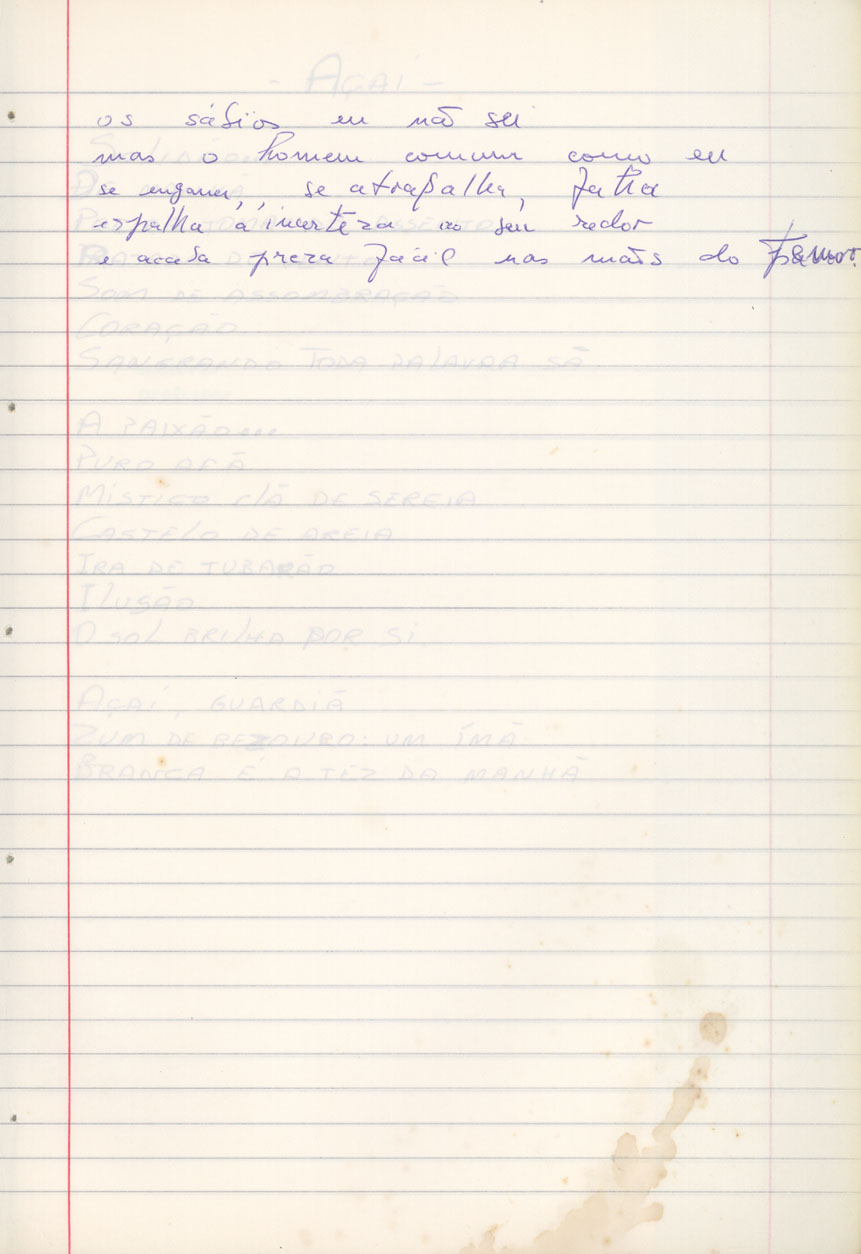 - AÇAÍ -
os sábios eu não sei
mas o homem comum como eu
se engana, se atrapalha, falha
espalha a incerteza ao seu redor
e acaba preza fácil nas mãos do amor.
SOM DE ASSOMBRAÇÃO
CORAÇÃO
SANGRANDO TODA PALAVRA SÃ
A PAIXÃO...
PURO AFÃ
MÍSTICO CLÃ DE SEREIA
CASTELO DE AREIA
IRA DE TUBARÃO
ILUSÃO
O SOL BRILHA POR SI
AÇAÍ, GUARDIÃ
ZUM DE BEZOURO: UM ÍMÃ
BRANCA É A TEZ DA MANHÃ